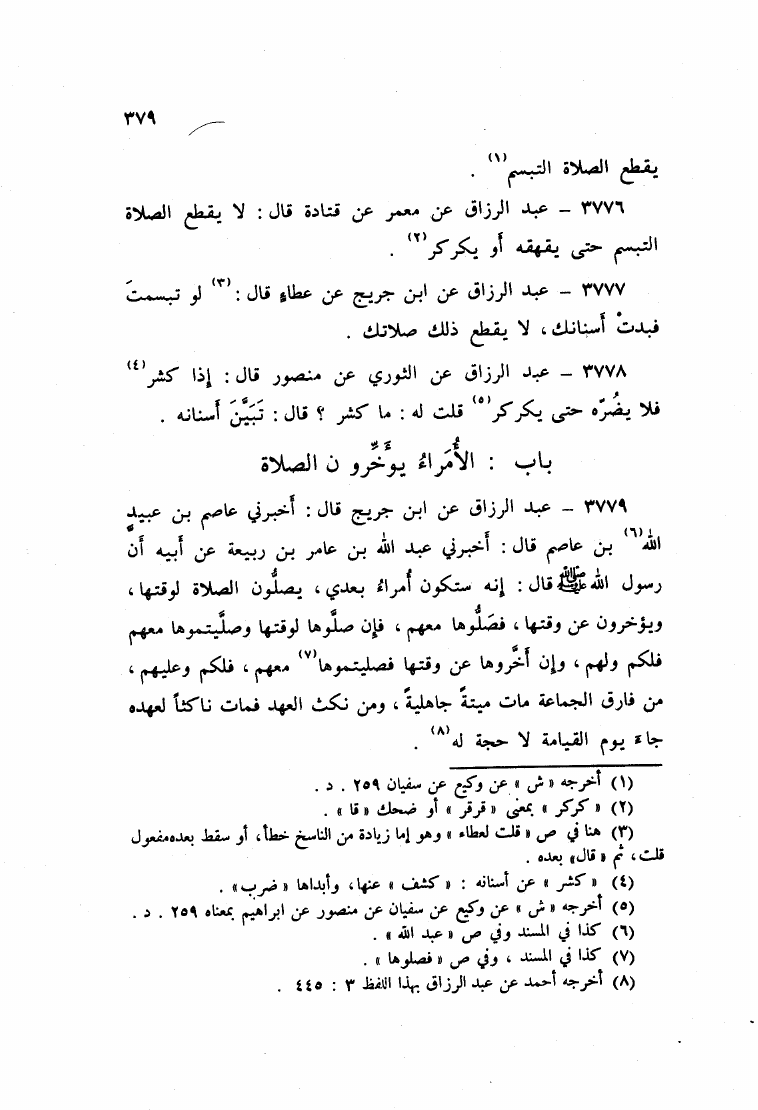 ٣٧٩
يقطع الصلاة التبسم(١) .
٣٧٧٦ – عبد الرزاق عن معمر عن قتادة قال : لا يقطع الصلاة
التبسم حتى يقهقه أو يكركر(٢) .
٣٧٧٧ – عبد الرزاق عن ابن جريج عن عطاءٍ قال :(٣) لو تبسمتَ
فبدتْ أَسنانك ، لا يقطع ذلك صلاتك .
٣٧٧٨ – عبد الرزاق عن الثوري عن منصور قال : إذا كشر(٤)
فلا يضُرّه حتى يكركر(٥) قلت له : ما كشر ؟ قال : تَبَيَّنَ أَسنانه .
باب : الأُمَراءُ يؤَخِّرو ن الصلاة
٣٧٧٩ – عبد الرزاق عن ابن جريج قال : أَخبرني عاصم بن عبيدِ
الله(٦) بن عاصم قال : أَخبرني عبد الله بن عامر بن ربيعة عن أَبيه أَن
رسول الله ﷺ قال : إِنه ستكون أُمراءُ بعدي ، يصلُّون الصلاة لوقتها ،
ويؤخرون عن وقتها ، فصَلُّوها معهم ، فإن صلَّوها لوقتها وصلَّيتموها معهم
فلكم ولهم ، وإن أَخَّروها عن وقتها فصليتموها(٧) معهم ، فلكم وعليهم ،
من فارق الجماعة مات ميتةً جاهليةً ، ومن نكث العهد فمات ناكثاً لعهده
جاءَ يوم القيامة لا حجة له(٨) .
(١) أخرجه « ش » عن وكيع عن سفيان ٢٥٩ . د .
(٢) « كركر » بمعنى « قرقر » أو ضحك « قا » .
(٣) هنا في ص « قلت لعطاء » وهو إما زيادة من الناسخ خطأ ، أو سقط بعده مفعول
قلت ، ثم « قال » بعده .
(٤) « كشر » عن أسنانه : « كشف » عنها ، وأبداها « ضرب » .
(٥) أخرجه « ش » عن وكيع عن سفيان عن منصور عن ابراهيم بمعناه ٢٥٩ . د .
(٦) كذا في المسند وفي ص « عبد الله » .
(٧) كذا في المسند ، وفي ص « فصلوها » .
(٨) أخرجه أحمد عن عبد الرزاق بهذا اللفظ ٣ : ٤٤٥ .